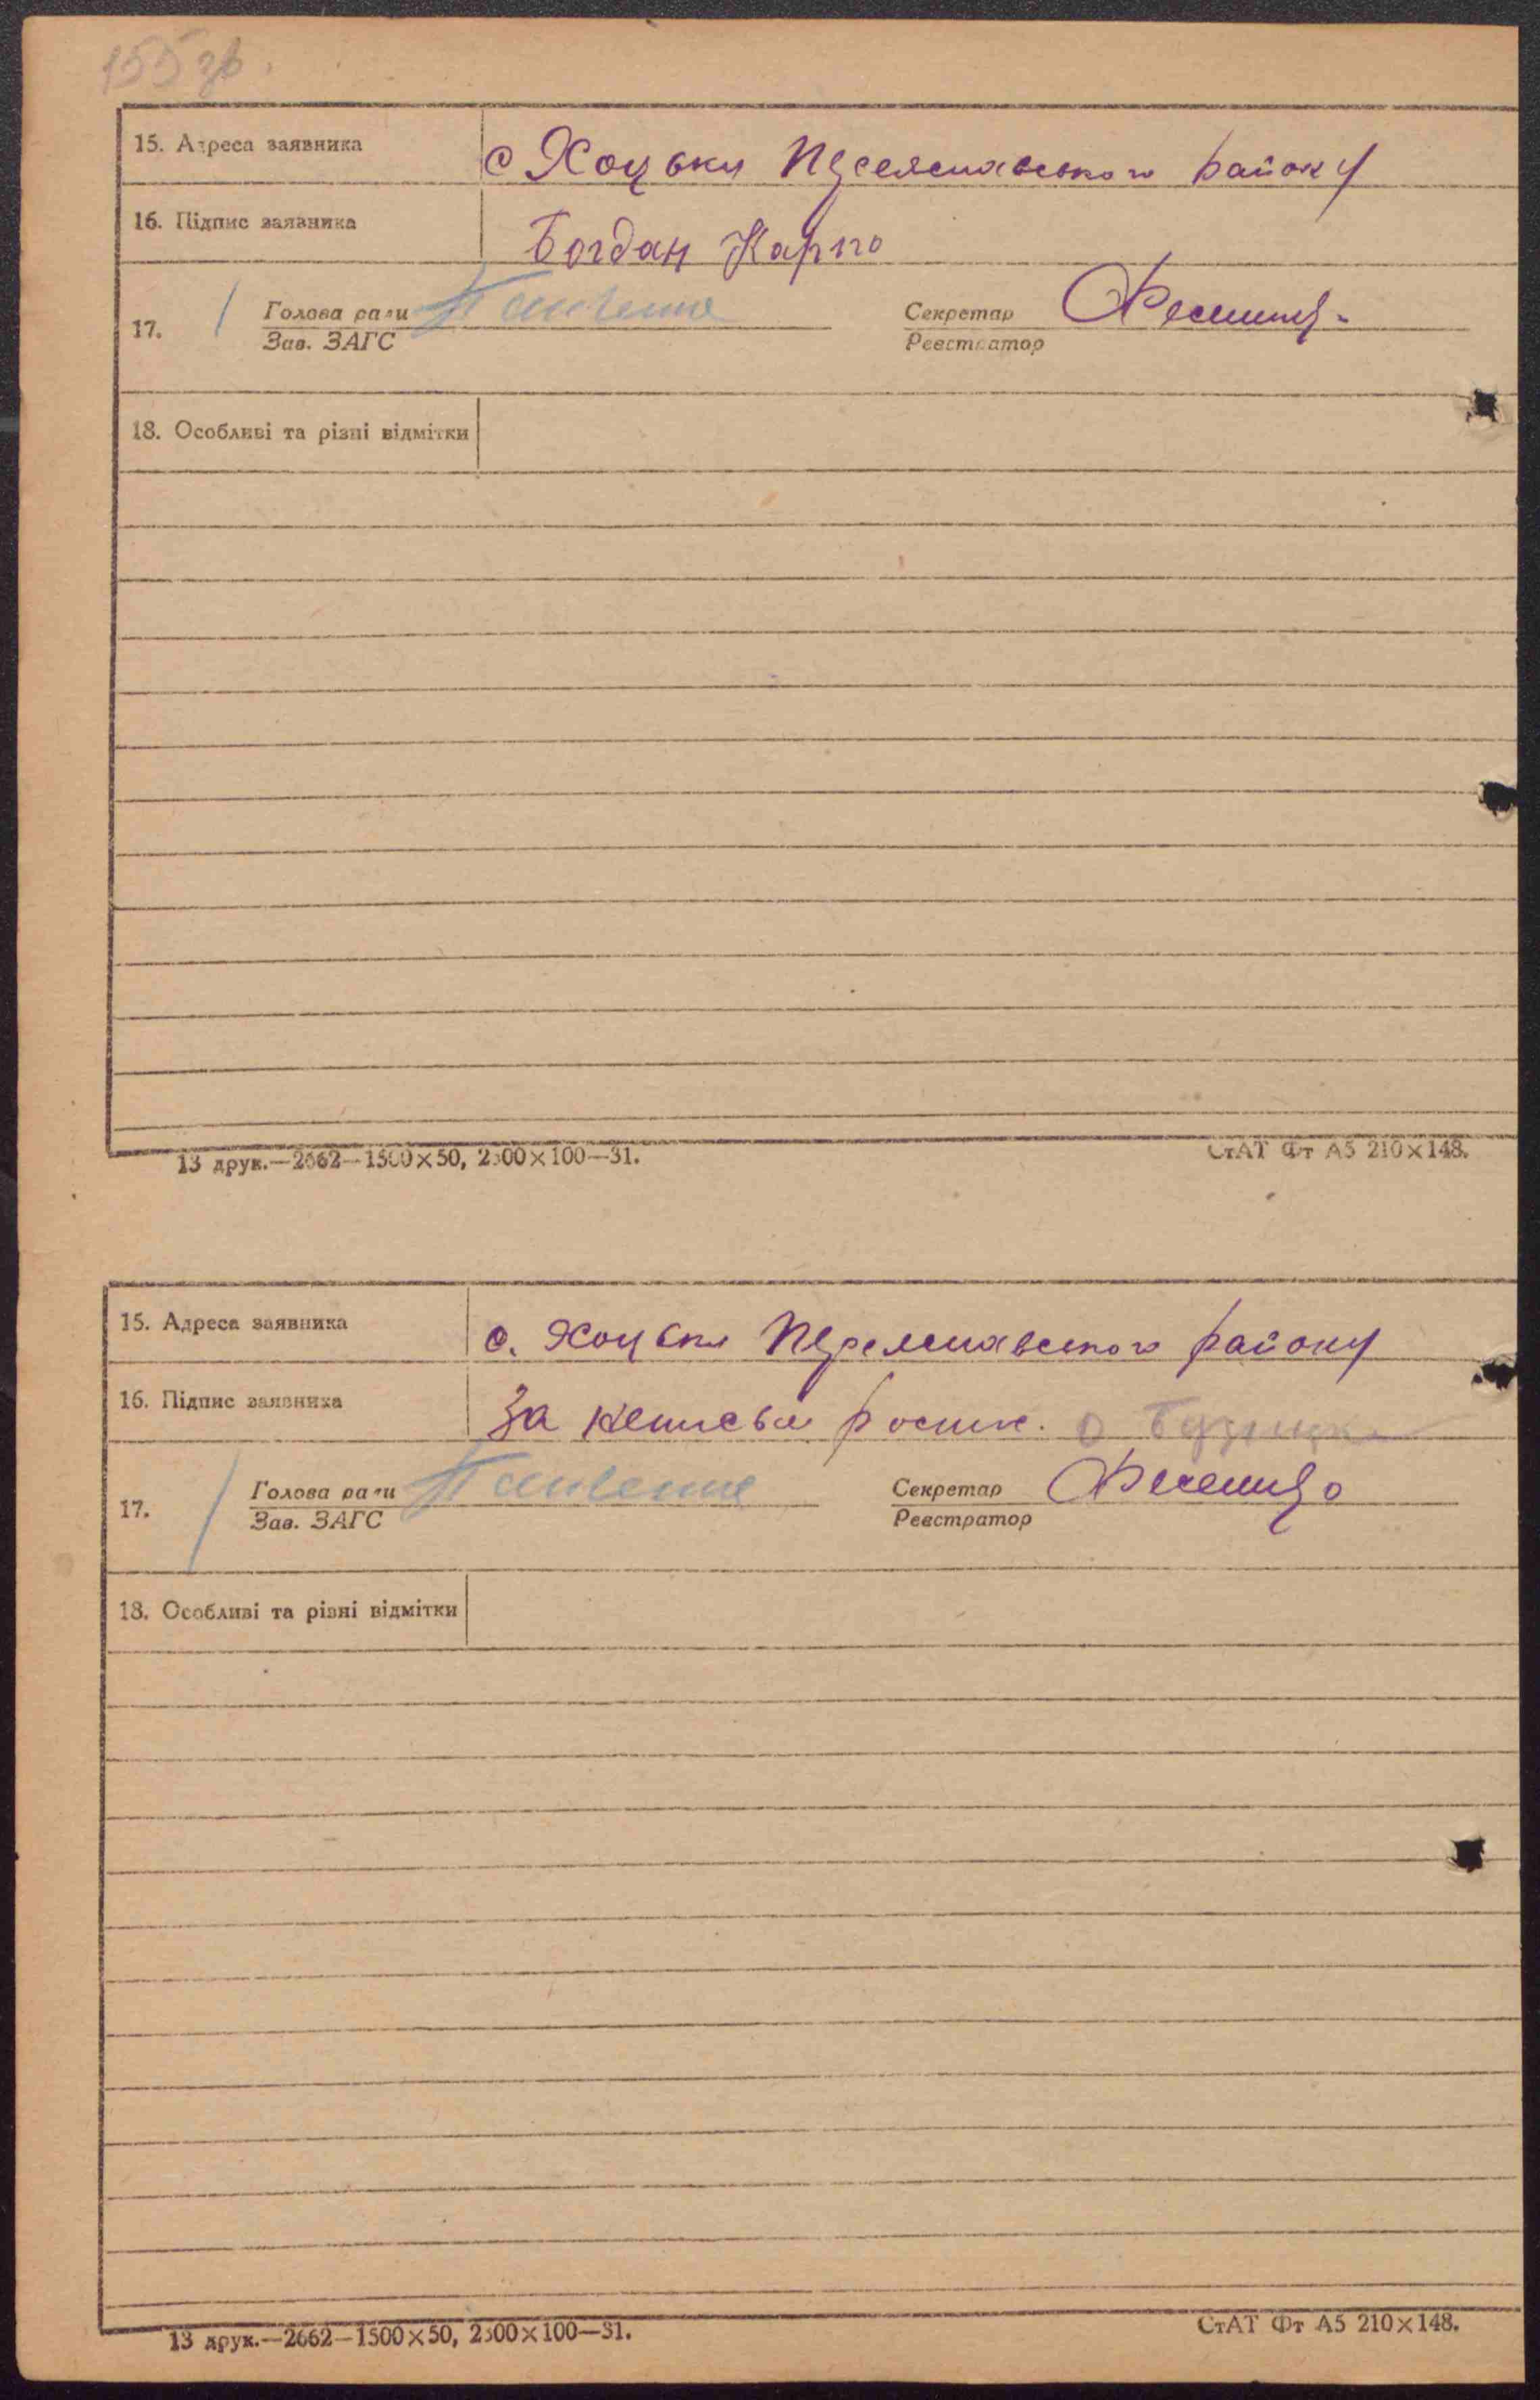 155 зв.
15. Адреса заявника с Хоцьки Переяславського району
16. Підпис заявника Богдан Карпо
17. Голова ради Секретар
Зав. ЗАГС Реєстратор
18. Особливі та різні відмітки
13 друк.—2662—1500×50, 2500×100—31. СтАТ Фт А5 210×148.
15. Адреса заявника с. Хоцьки Переяславського району
16. Підпис заявника За роспис.
17. Голова ради Секретар
Зав. ЗАГС Реєстратор
18. Особливі та різні відмітки
13 друк.—2662—1500×50, 2500×100—31. СтАТ Фт А5 210×148.